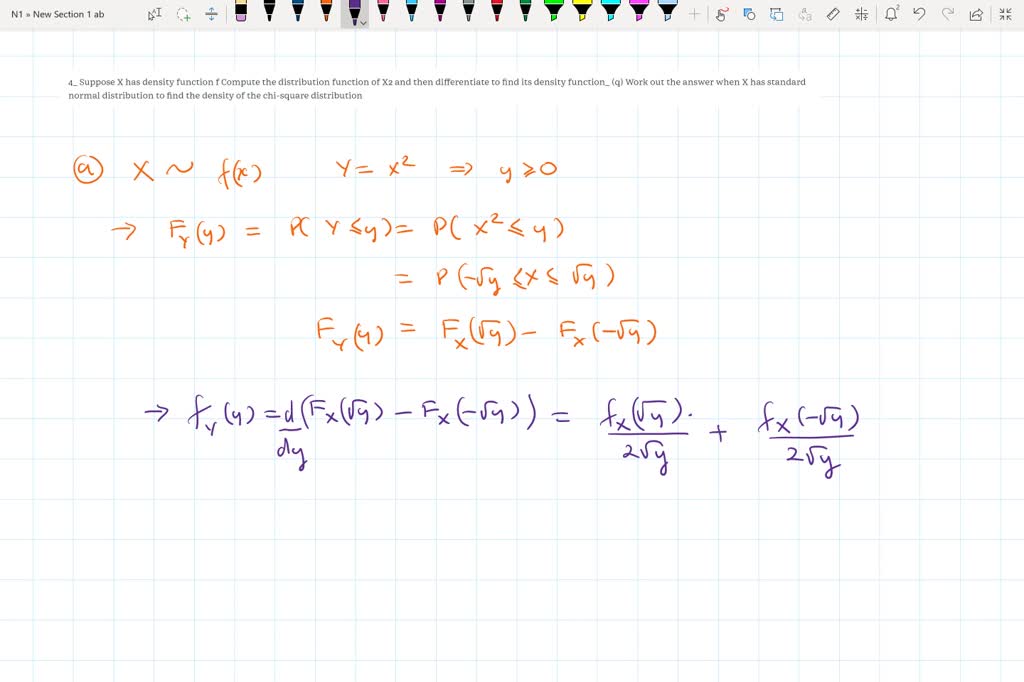 N1 » New Section 1 ab
2
4_ Suppose X has density function f Compute the distribution function of X2 and then differentiate to find its density function_ (q) Work out the answer when X has standard
normal distribution to find the density of the chi-square distribution
(a) X ~ f(x) Y = x² ⇒ y ≥ 0
→ F_Y(y) = P( Y ≤ y) = P( x² ≤ y)
= P(-√y ≤ x ≤ √y)
F_Y(y) = F_X(√y) - F_X(-√y)
→ f_Y(y) = d/dy (F_X(√y) - F_X(-√y)) = f_X(√y)·/2√y + f_X(-√y)/2√y